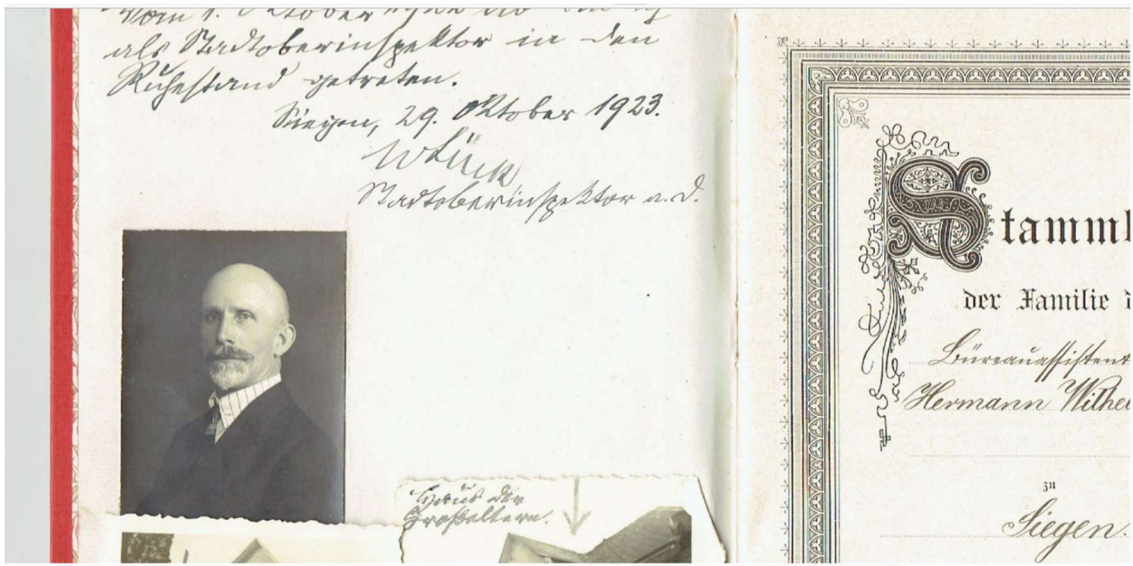 Vom 1. Oktober 1922 ab bin ich
als Stadtoberinspektor in den
Ruhestand getreten.
Siegen, 29. Oktober 1923.
WFück
Stadtoberinspektor a. D.
Haus der
Großeltern.
Stamm
der Familie d
Büreauassistent
Hermann Wilhe
zu
Siegen.